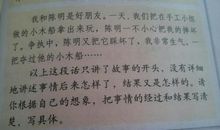 我和陈明是好朋友。一天，我们把在手工小组
做的小木船拿出来玩，陈明一不小心把我的摔坏
了。争执中，陈明又把它踩坏了，我非常生气，一
把夺过他的小木船……
以上这段话只讲了故事的开头，没有详细
地讲述事情后来怎样了，结果又是怎样的。请
你根据自己的想象，把事情的经过和结果写清
楚，写具体。